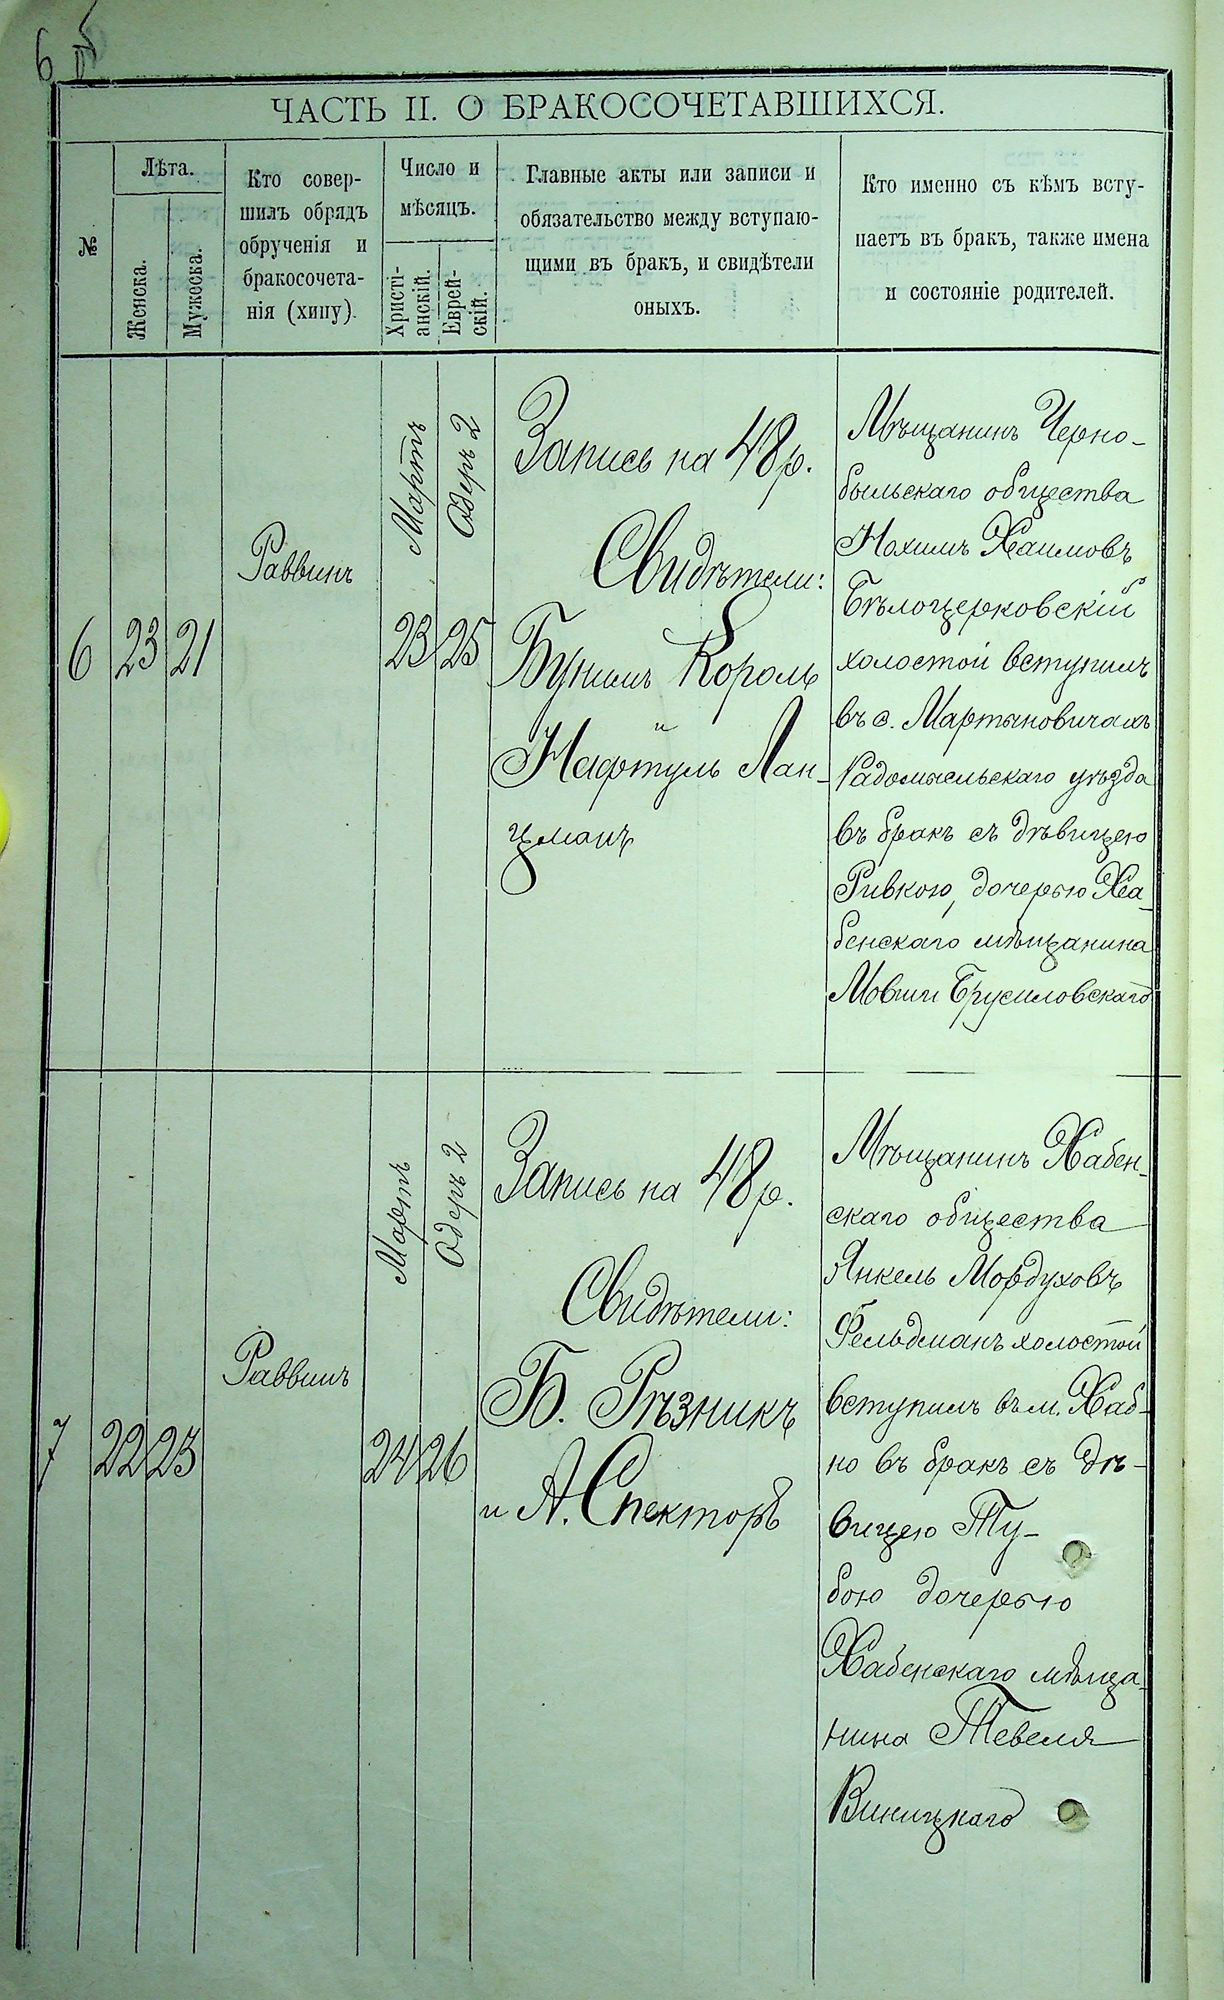 6
ЧАСТЬ II. О БРАКОСОЧЕТАВШИХСЯ.
№
Лѣта.
Женска.
Мужеска.
Кто совер-
шилъ обрядъ
обрученія и
бракосочета-
нія (хипу).
Число и
мѣсяцъ.
Христі-
анскій.
Еврей-
скій.
Главные акты или записи и
обязательство между вступаю-
щими въ бракъ, и свидѣтели
оныхъ.
Кто именно съ кѣмъ всту-
паетъ въ бракъ, также имена
и состояніе родителей.
6
23
21
Раввинъ
Мартъ
23
Одеръ 2
25
Запись на 48 р.
Свидѣтели:
Бунимъ Король
и
Нафтуль Лан-
цманъ
Мѣщанинъ Черно-
быльскаго общества
Нохимъ Хаимовъ
Бѣлоцерковскій
холостой вступилъ
въ с. Мартыновичахъ
Радомысльскаго уѣзда
въ бракъ съ дѣвицею
Ривкою, дочерью Ха-
бенскаго мѣщанина
Мовши Брусиловскаго
7
22
23
Раввинъ
Мартъ
24
Одеръ 2
26
Запись на 48 р.
Свидѣтели:
Б. Рѣзникъ
и А. Спекторъ
Мѣщанинъ Хабен-
скаго общества
Янкель Мордуховъ
Фельдманъ холостой
вступилъ въ м. Хаб-
но въ бракъ съ дѣ-
вицею Ту-
бою дочерью
Хабенскаго мѣща-
нина Тевеля
Виницкаго